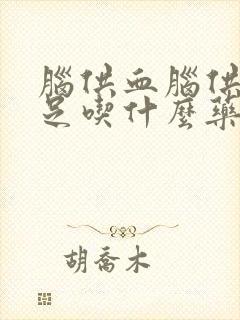 腦供血腦供
足喫什麼藥
胡喬木